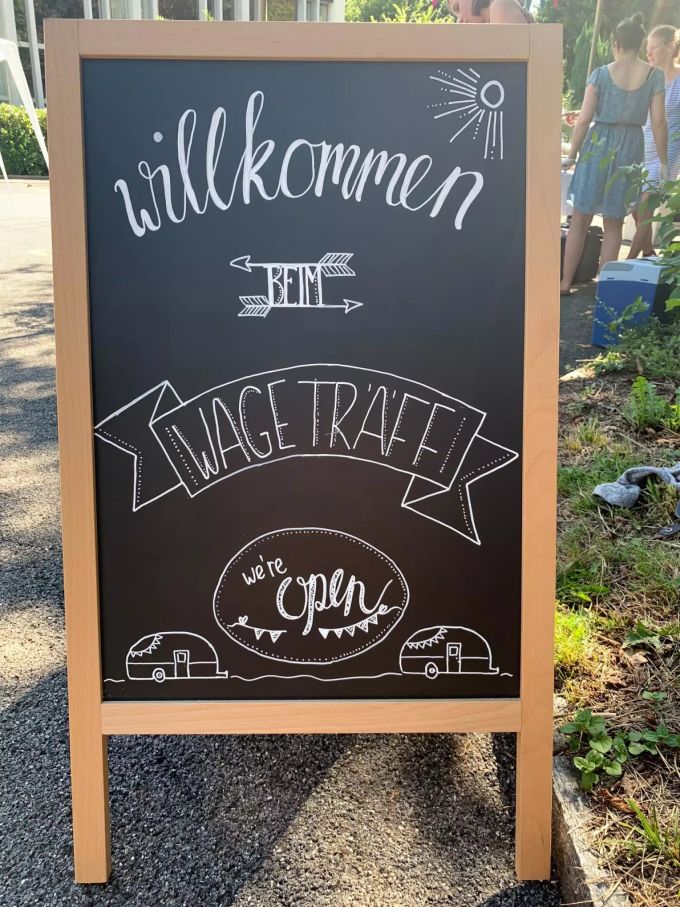 willkommen
BEIM
WAGETRÄFF
we're
open